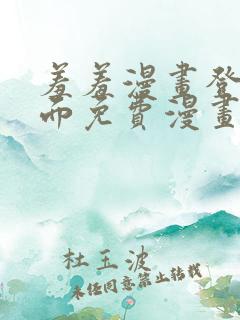 羞羞漫畫登
而免費漫畫
杜玉波
未经同意禁止转载